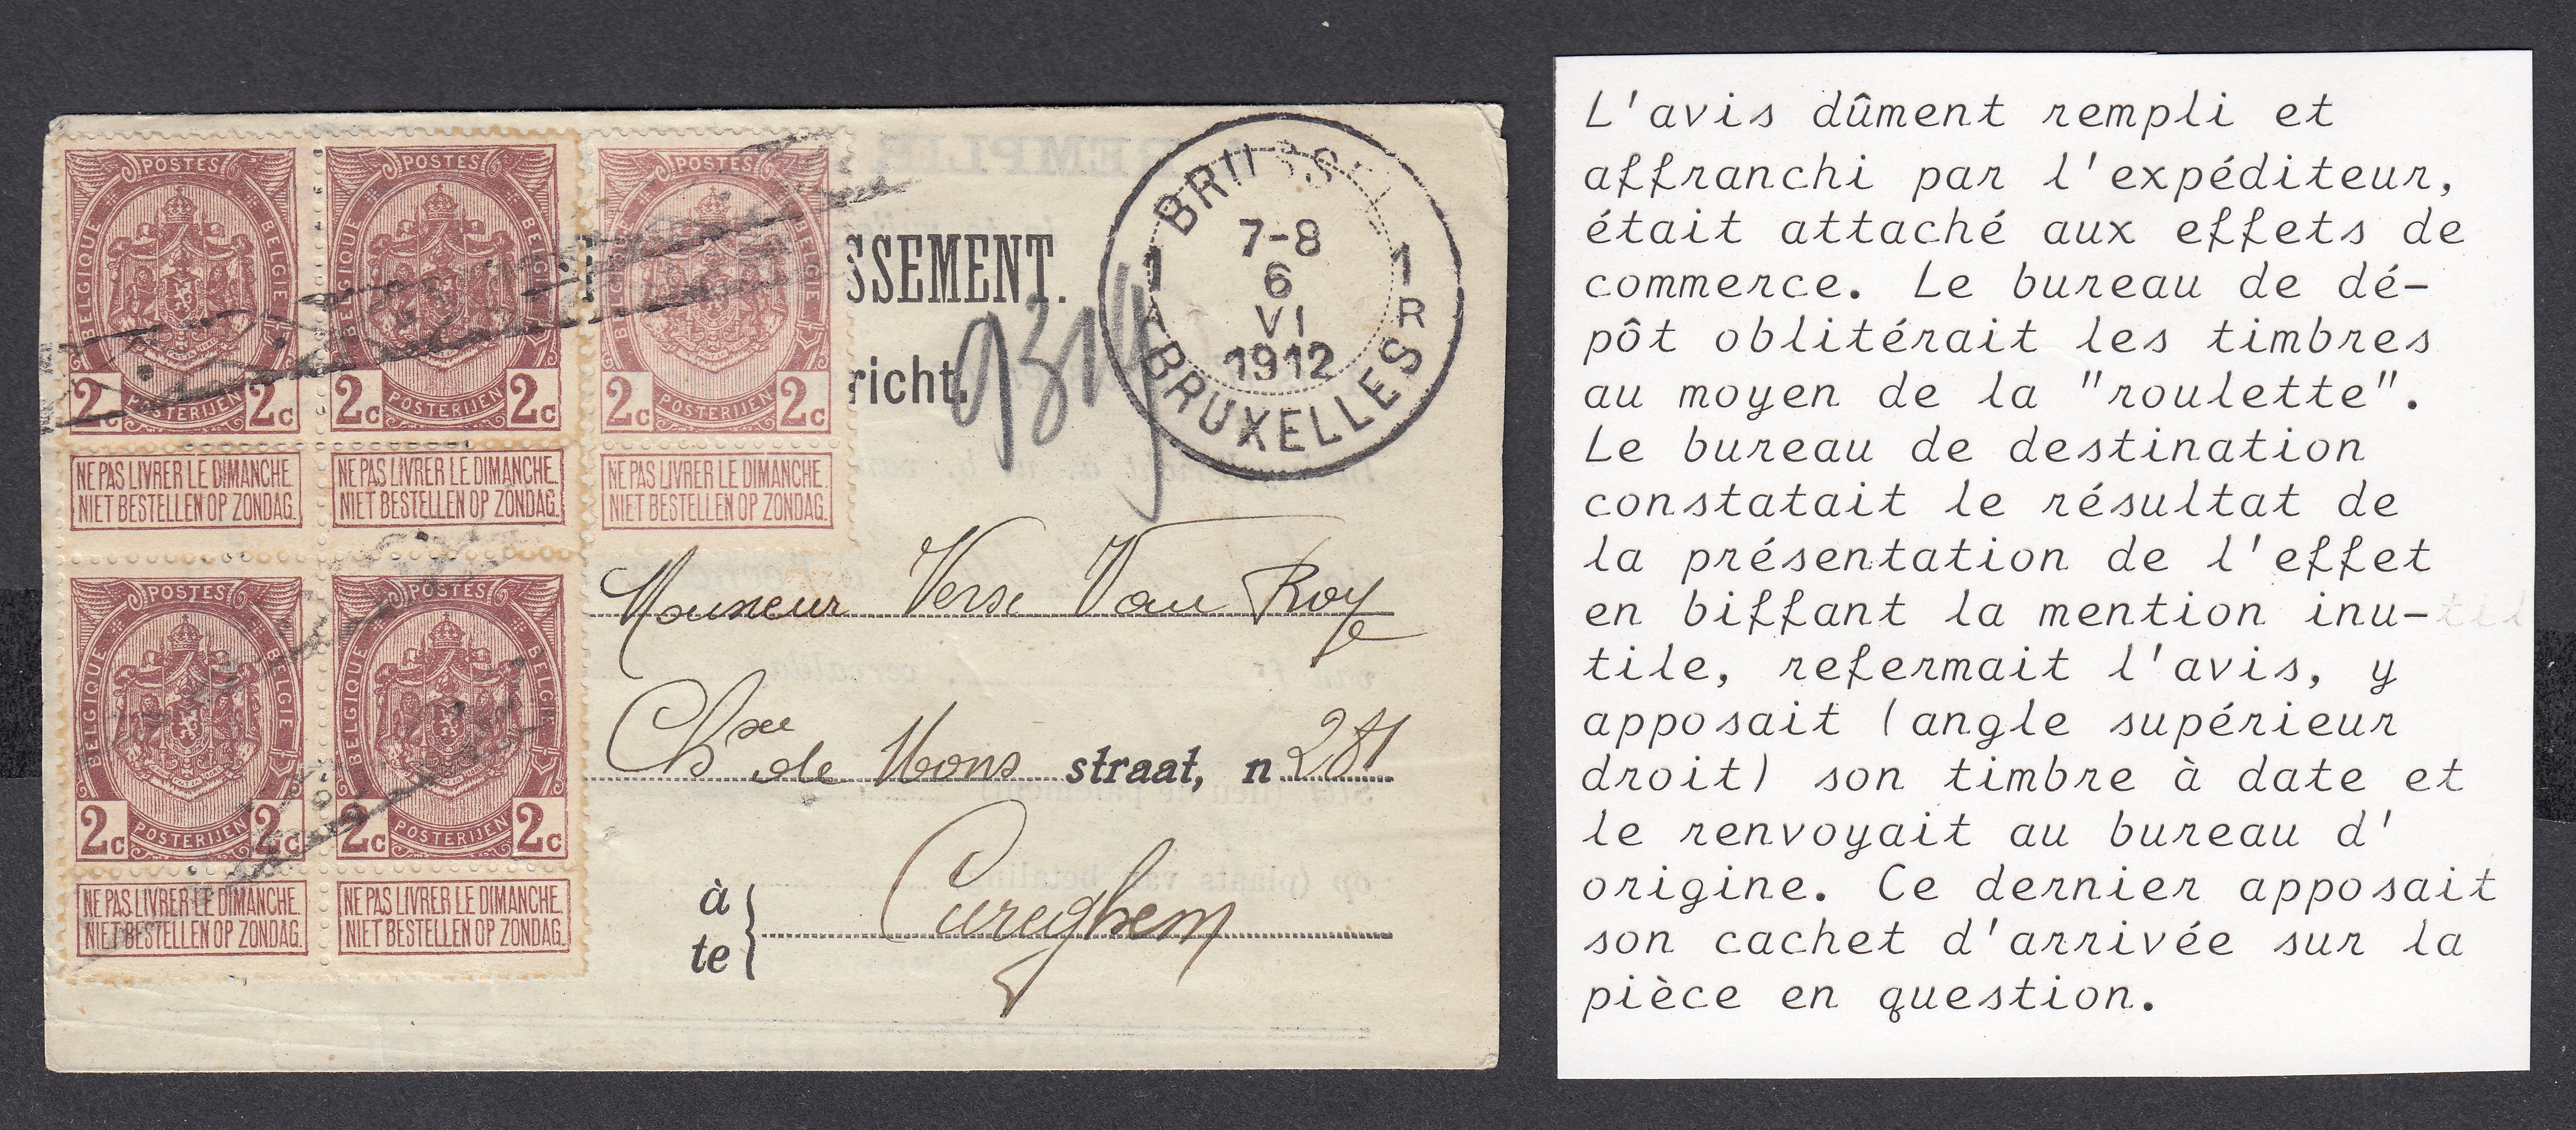 POSTES
BELGIQUE BELGIE
2c POSTERIJEN 2c
NE PAS LIVRER LE DIMANCHE.
NIET BESTELLEN OP ZONDAG.
POSTES
BELGIQUE BELGIE
2c POSTERIJEN 2c
NE PAS LIVRER LE DIMANCHE.
NIET BESTELLEN OP ZONDAG.
POSTES
BELGIQUE BELGIE
2c POSTERIJEN 2c
NE PAS LIVRER LE DIMANCHE.
NIET BESTELLEN OP ZONDAG.
POSTES
BELGIQUE BELGIE
2c POSTERIJEN 2c
NE PAS LIVRER LE DIMANCHE.
NIET BESTELLEN OP ZONDAG.
POSTES
BELGIQUE BELGIE
2c POSTERIJEN 2c
NE PAS LIVRER LE DIMANCHE.
NIET BESTELLEN OP ZONDAG.
SSEMENT.
richt.
9314
BRUSSEL
1 7-8 1
6
VI R
1912
BRUXELLES
Monsieur Verse Van Roy
Chsée de Mons straat, n 281
à
te
Cureghem
L'avis dûment rempli et
affranchi par l'expéditeur,
était attaché aux effets de
commerce. Le bureau de dé-
pôt oblitérait les timbres
au moyen de la "roulette".
Le bureau de destination
constatait le résultat de
la présentation de l'effet
en biffant la mention inu-
tile, refermait l'avis, y
apposait (angle supérieur
droit) son timbre à date et
le renvoyait au bureau d'
origine. Ce dernier apposait
son cachet d'arrivée sur la
pièce en question.